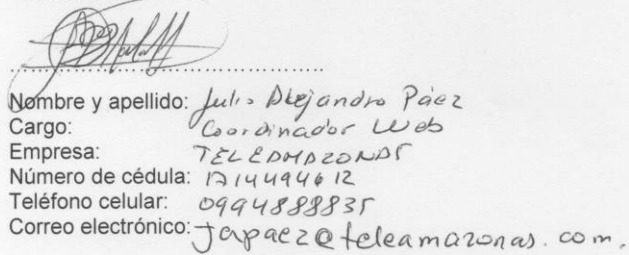 Nombre y apellido: Julio Alejandro Páez
Cargo: Coordinador Web
Empresa: TELEAMAZONAS
Número de cédula: 1714494612
Teléfono celular: 0994888835
Correo electrónico: japaez@teleamazonas.com.